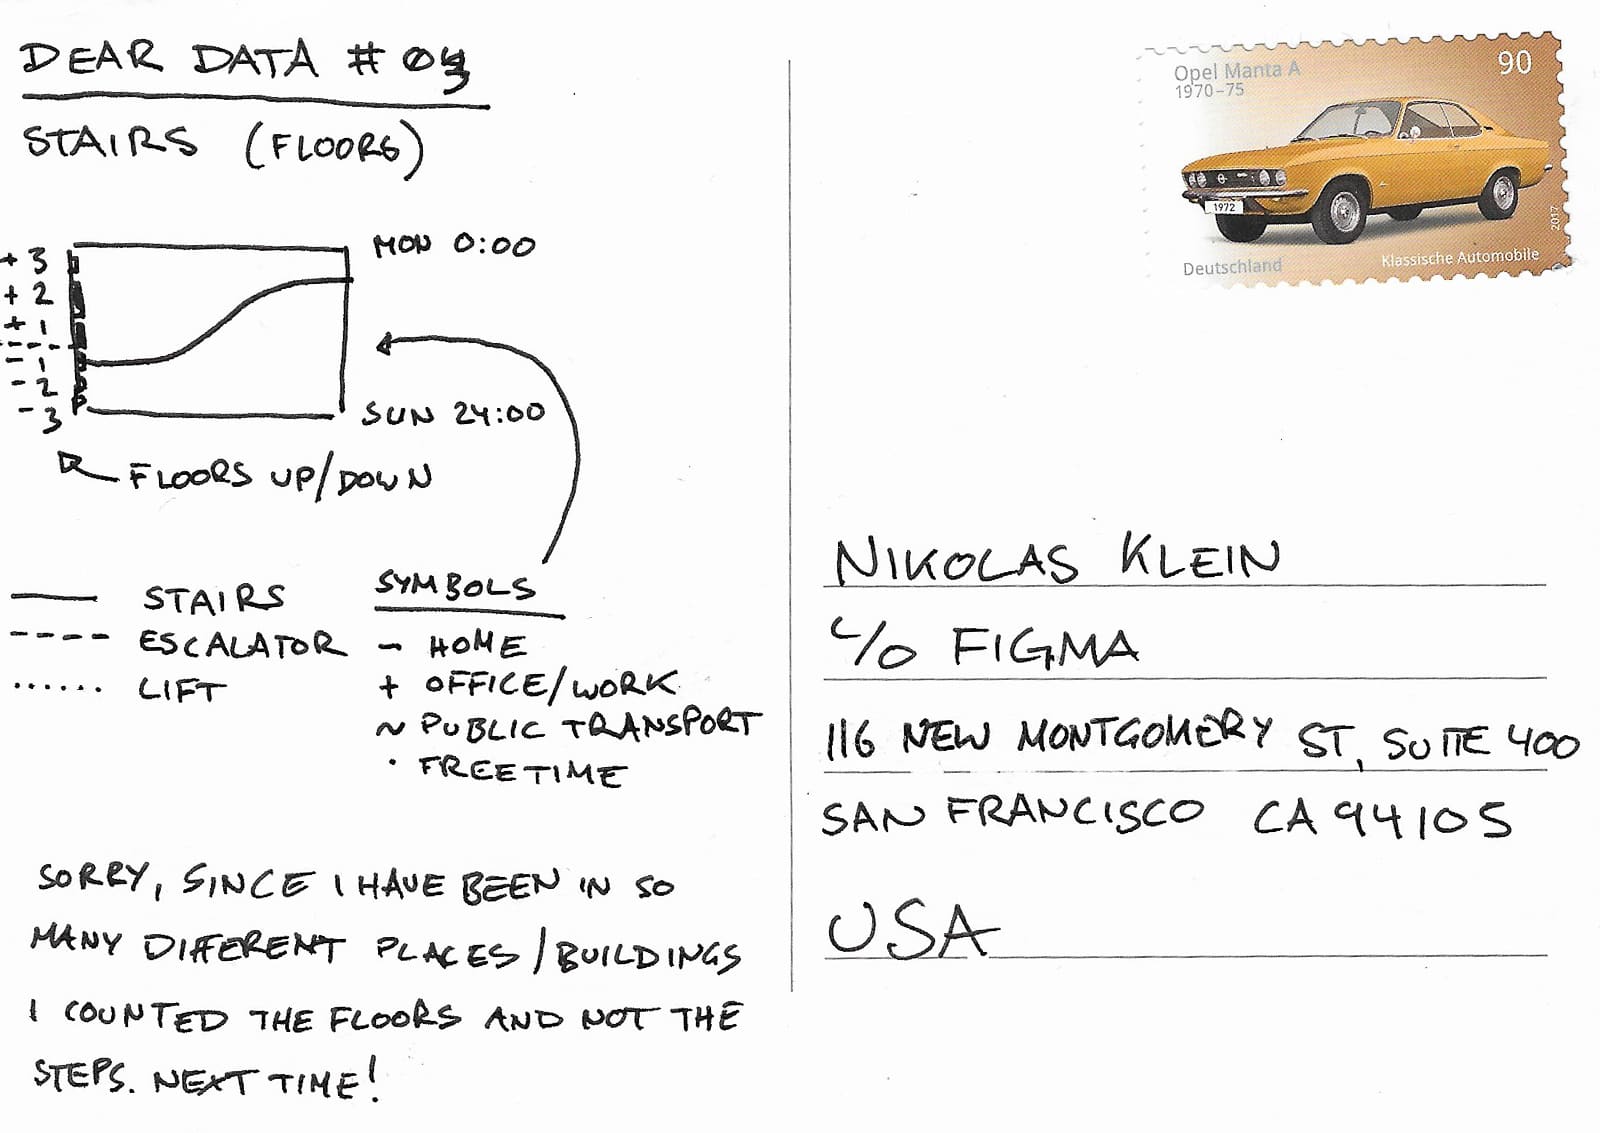 DEAR DATA # 03
STAIRS (FLOORS)
MON 0:00
+ 3
+ 2
+ 1
- 1
- 2
- 3
SUN 24:00
FLOORS UP/DOWN
STAIRS
ESCALATOR
LIFT
SYMBOLS
– HOME
+ OFFICE/WORK
~ PUBLIC TRANSPORT
· FREETIME
SORRY, SINCE I HAVE BEEN IN SO
MANY DIFFERENT PLACES/BUILDINGS
I COUNTED THE FLOORS AND NOT THE
STEPS. NEXT TIME!
Opel Manta A
1970–75
90
1972
2017
Deutschland
Klassische Automobile
NIKOLAS KLEIN
C/O FIGMA
116 NEW MONTGOMERY ST, SUITE 400
SAN FRANCISCO CA 94105
USA